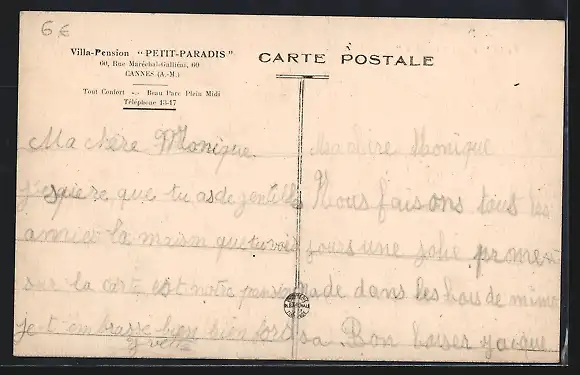 6€
Villa-Pension "PETIT-PARADIS"
60, Rue Maréchal-Galliéni, 60
CANNES (A.-M.)
Tout Confort -- Beau Parc Plein Midi
Téléphone 13-17
CARTE POSTALE
Ma chère Monique
j'espère que tu as de gentilles
amies la maison que tu vois
sur la carte est notre pension
je t'embrasse bien bien fort
yvette
Ma chère Monique
Nous faisons tous les
jours une jolie prome
nade dans les bois de mimo
sa. Bon baiser jacque